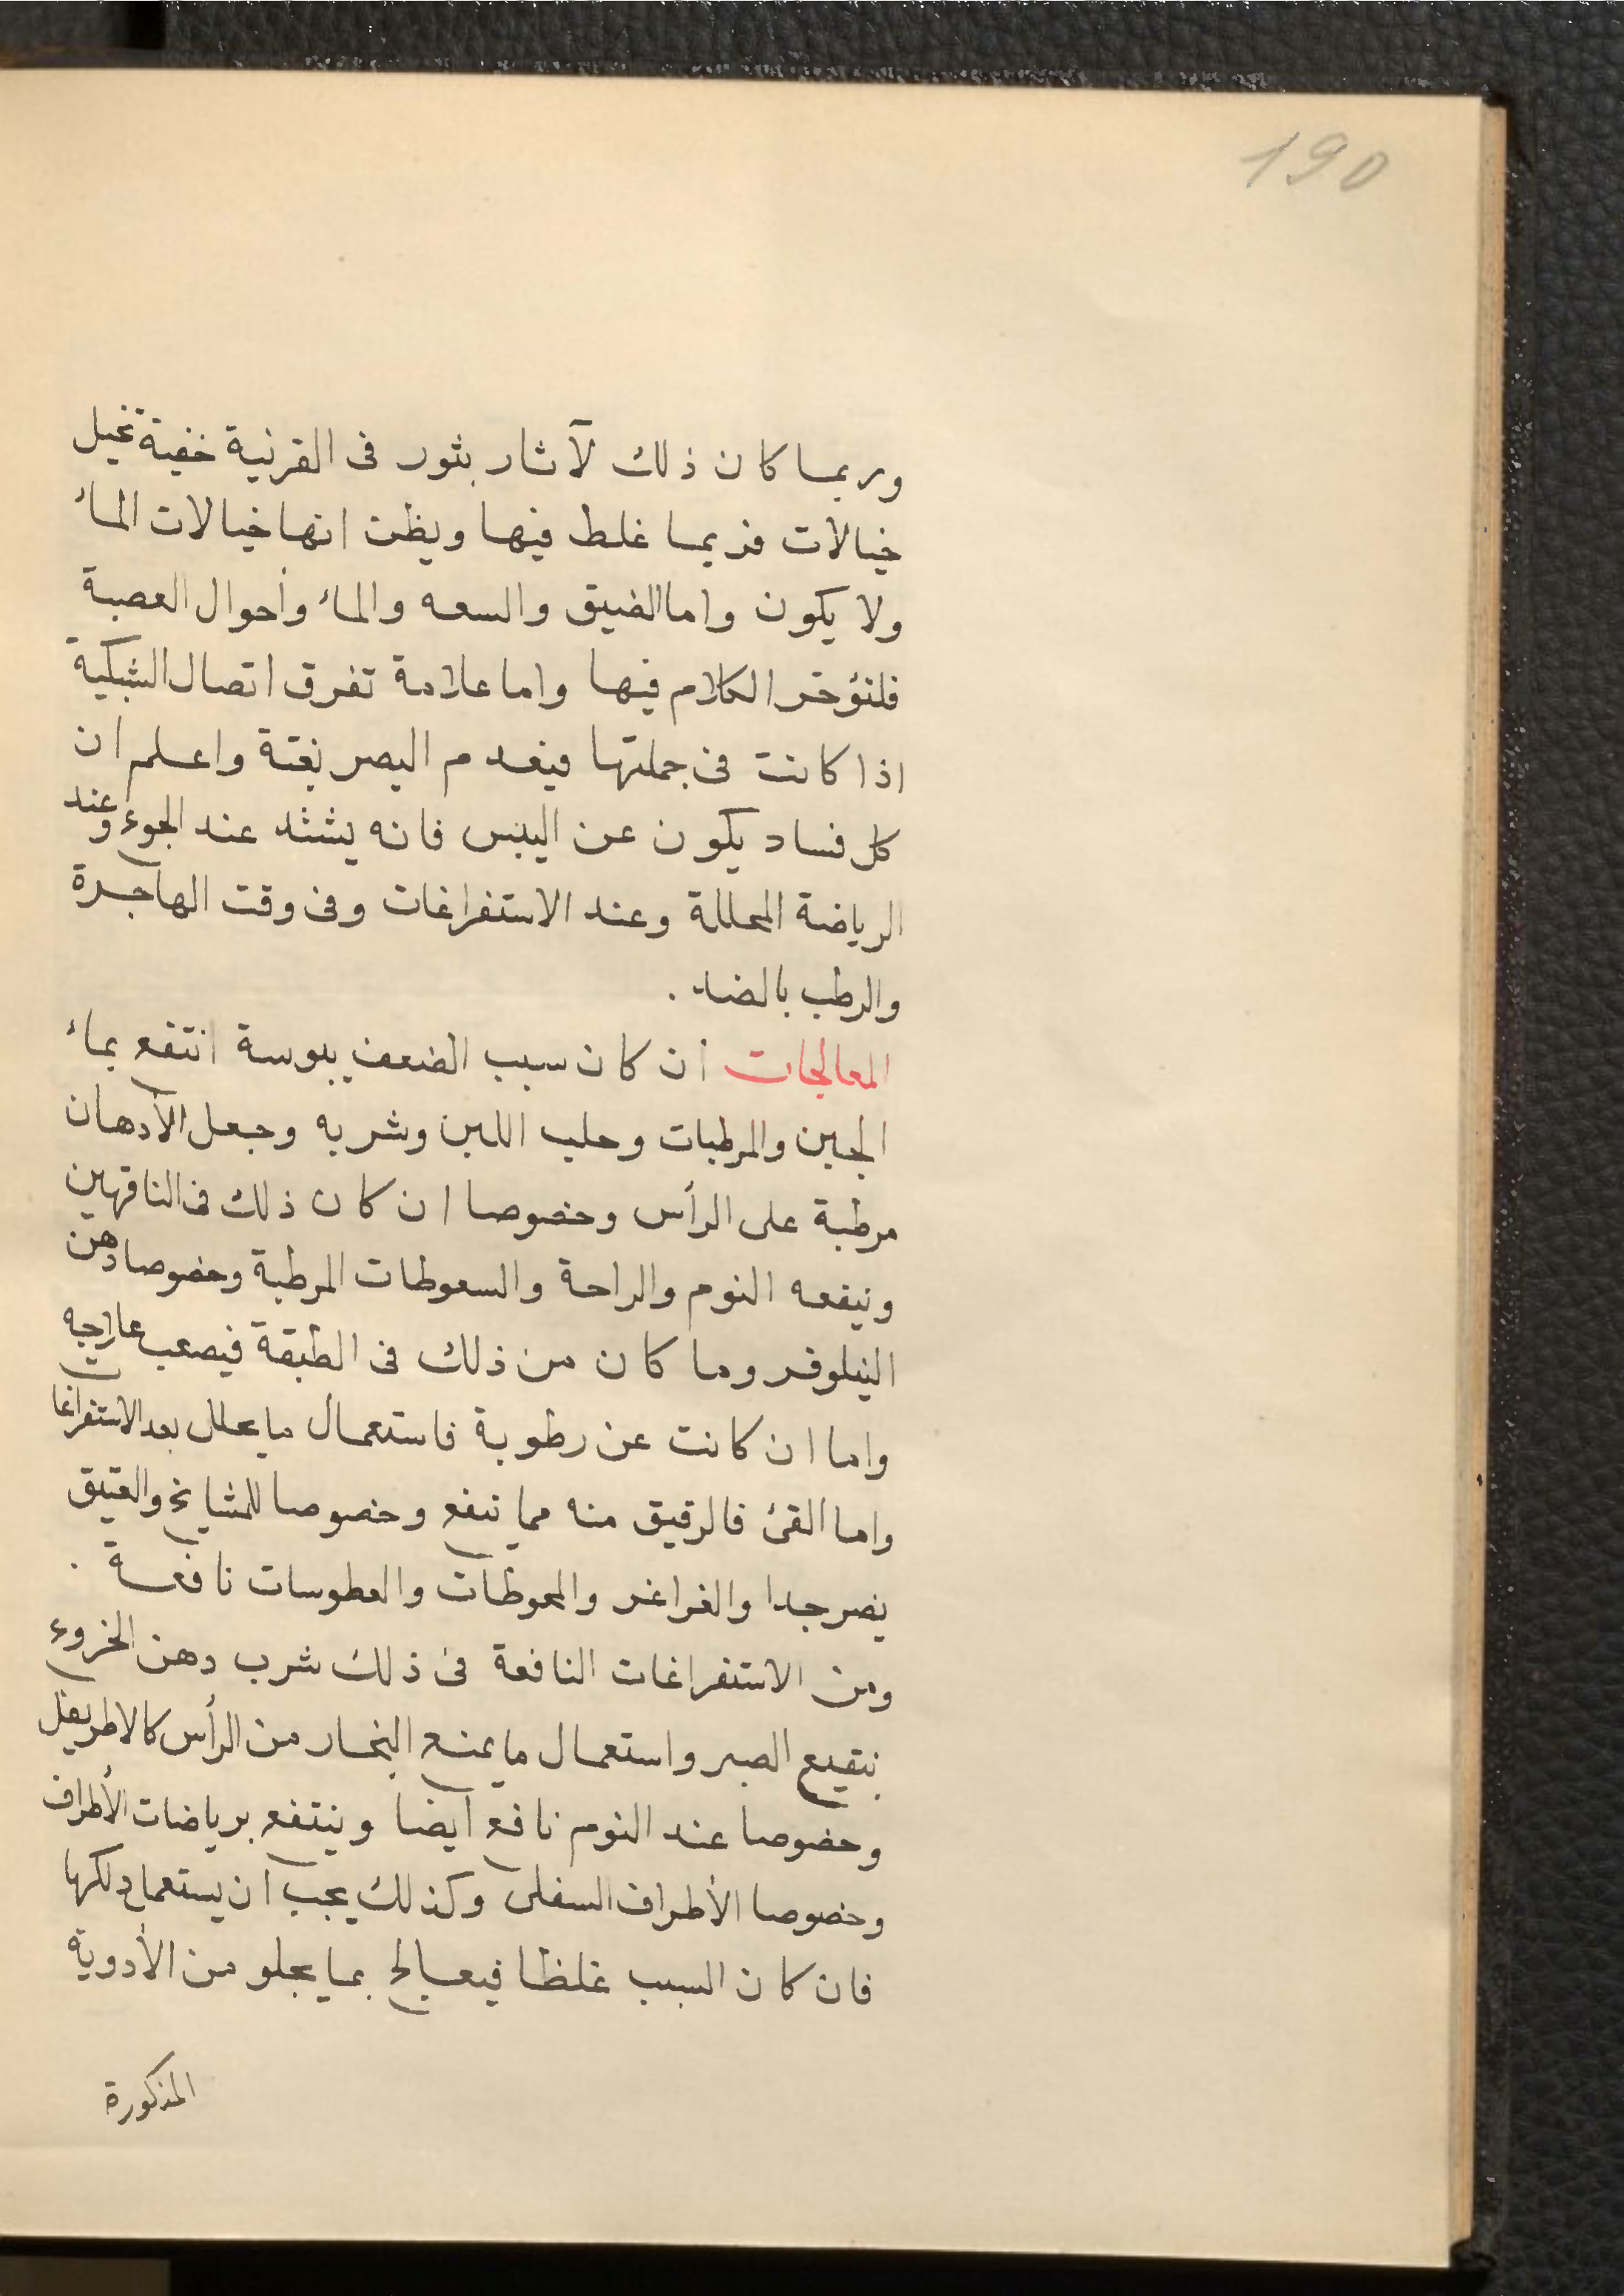 190
وربما كان ذلك لآثار بثور فى القرنية خفية تخيل
خيالات فربما غلط فيها ويظن انها خيالات الماء
ولا يكون واما الضيق والسعه والماء وأحوال العصبة
فلنؤخر الكلام فيها واما علامة تفرق اتصال الشبكية
اذا كانت فى جملتها فيعدم البصر بغتة واعلم ان
كل فساد يكون عن اليبس فانه يشتد عند الجوع وعند
الرياضة المحللة وعند الاستفراغات وفى وقت الهاجرة
والرطب بالضد .
المعالجات ان كان سبب الضعف يبوسة انتفع بماء
الجبن والمرطبات وحلب اللبن وشربه وجعل الأدهان
مرطبة على الرأس وخصوصا ان كان ذلك فى الناقهين
وينفعه النوم والراحة والسعوطات المرطبة وخصوصا دهن
النيلوفر وما كان من ذلك فى الطبقة فيصعب علاجه
واما ان كانت عن رطوبة فاستعمال ما يحلل بعد الاستفراغات
واما القئ فالرقيق منه مما ينفع وخصوصا للمشايخ والعتيق
يضر جدا والغراغر والمخوطات والعطوسات نافعة .
ومن الاستفراغات النافعة فى ذلك شرب دهن الخروع
بنقيع الصبر واستعمال ما يمنع البخار من الرأس كالاطريفل
وخصوصا عند النوم نافع ايضا وينتفع برياضات الأطراف
وخصوصا الأطراف السفلى وكذلك يجب ان يستعمل دلكها
فان كان السبب غلظا فيعالج بما يجلو من الأدوية
المذكورة